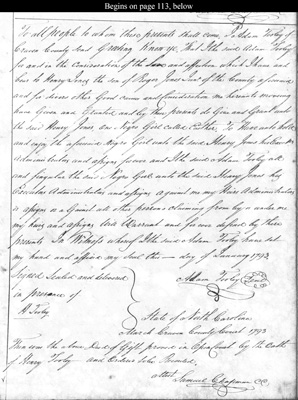 Begins on page 113, below
To all people to whom these presents shall come, I Adam Tooley of
Craven County Send Greeting Know ye, That I the said Adam Tooley
for and in the Consideration of the love and affection which I have and
bear to Henry Jones the son of Roger Jones of the County aforesaid
and for divers other Good causes and Consideration me hereunto moving
have Given and Granted and by these presents do Give and Grant unto
the said Henry Jones one Negro Girl called Esther To Have unto hold
and enjoy the aforesaid Negro Girl unto the said Henry Jones his Heirs
Administrators and assigns forever and I the said Adam Tooley all
and singular the said Negro Girl unto the said Henry Jones his
Executors Administrators and assigns against me my Heirs Administrators
or assigns or against all other persons claiming from by or under me
my heirs and assigns Will Warrant and for ever defend by these
presents In Witness whereof I the said Adam Tooley have set
my hand and affixed my Seal the day of January 1793
Signed Sealed and delivered
in presence of
H Tooley
Adam Tooley Seal
State of North Carolina
March Craven County Court 1793
Then was the above Deed of Gift proved in Open Court by the Oath
of Henry Tooley and Ordered to be Recorded,
attest
Samuel Chapman CC